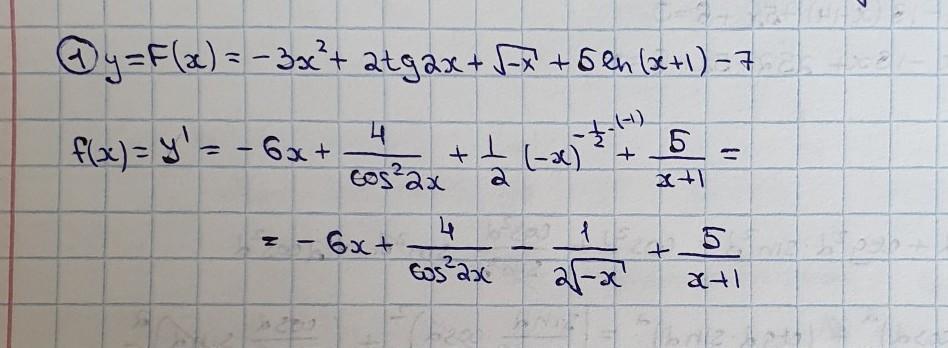 ① y=F(x)=-3x²+2tg2x+√-x+5ln(x+1)-7
f(x)=y'=-6x+4/cos²2x+1/2(-x)^(-1/2·(-1))+5/x+1=
=-6x+4/cos²2x-1/2√-x+5/x+1